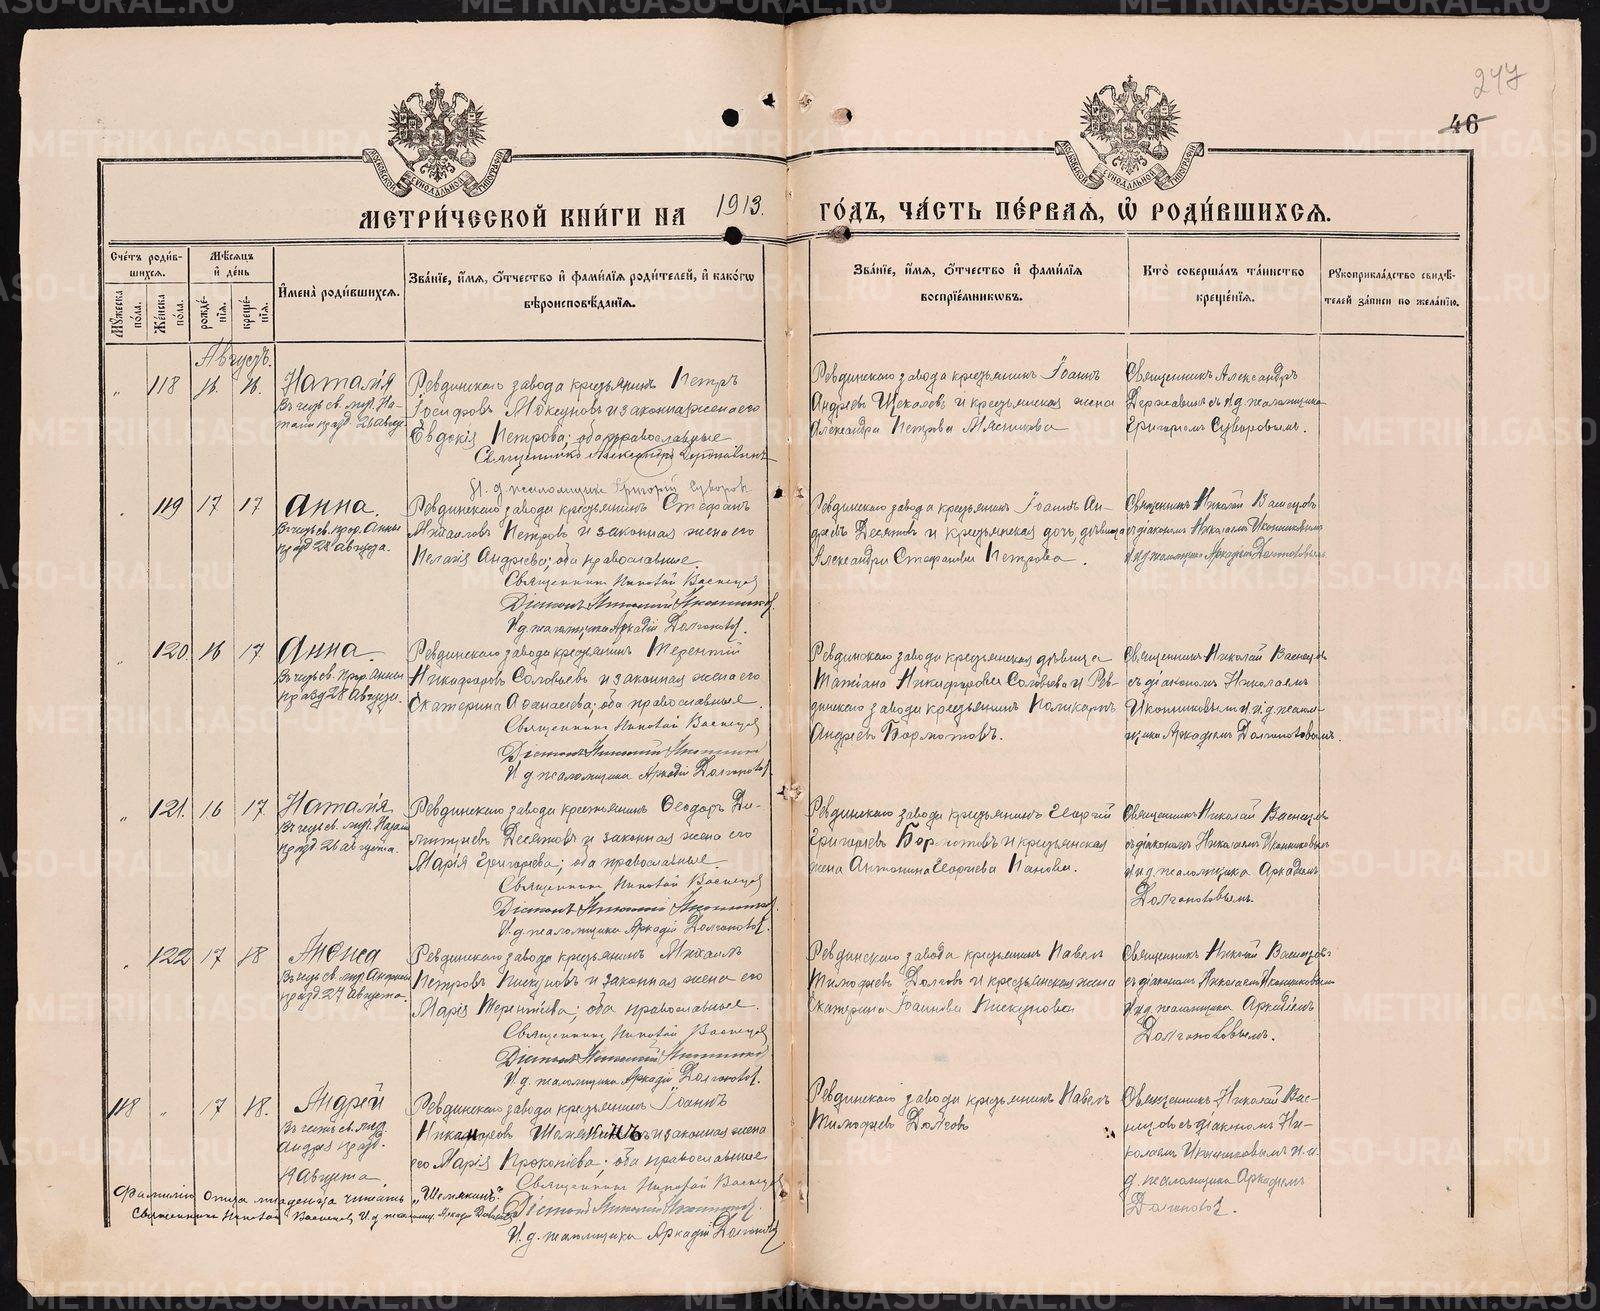 247
46
МОСКОВСКОЙ СѴНОДАЛЬНОЙ ТИПОГРАФІИ
МОСКОВСКОЙ СѴНОДАЛЬНОЙ ТИПОГРАФІИ
МЕТРИ́ЧЕСКОЙ КНИ́ГИ НА 1913. ГО́ДЪ, ЧА́СТЬ ПЕ́РВАЯ, Ѡ҆ РОДИ́ВШИХСЯ.
Сче́тъ роди́в-
шихся.
Мꙋ́жеска по́ла.
Же́нска по́ла.
Мѣ́сяцъ
и҆ де́нь
рожде́-
нїѧ.
креще́-
нїѧ.
И҆мена̀ роди́вшихсѧ.
Зва́нїе, и҆́мѧ, ѻ҆́тчество и҆ фами́лїѧ роди́телей, и҆ како́гѡ
вѣроисповѣ́данїѧ.
Зва́нїе, и҆́мѧ, ѻ҆́тчество и҆ фами́лїѧ
воспрїе́мникѡвъ.
Кто̀ соверша́лъ та́инство
креще́нїѧ.
Рꙋкоприкла́дство свидѣ́-
телей за́писи по жела́нїю.
Августъ.
118 16. 16. Наталія
Въ честь св. муч. На-
таліи празд. 26 августа
Ревдинскаго завода крестьянинъ Петръ
Іосифовъ Мокеуновъ и законная жена его
Евдокія Петрова; оба православные
Священникъ Александръ Державинъ
И. д. псаломщика Григорій Суворовъ
Ревдинскаго завода крестьянинъ Іоаннъ
Андреевъ Щекалевъ и крестьянская жена
Александра Петрова Мясникова
Священникъ Александръ
Державинъ съ и.д. псаломщика
Григоріемъ Суворовымъ.
119 17 17 Анна.
Въ честь св. прор. Анны
празд 28 августа.
Ревдинскаго завода крестьянинъ Стефанъ
Михайловъ Петровъ и законная жена его
Пелагія Андреева; оба православные.
Священникъ Николай Васнецовъ
Діаконъ Николай Иконниковъ
И. д. псаломщика Аркадій Долгополовъ.
Ревдинскаго завода крестьянинъ Іоаннъ Ан-
дреевъ Десятовъ и крестьянская дочь, дѣвица
Александра Стефанова Петрова.
Священникъ Николай Васнецовъ
съ діакономъ Николаемъ Иконниковымъ
и и.д. псаломщика Аркадіемъ Долгополовымъ.
120 16 17 Анна.
Въ честь св. прор. Анны
празд 28 августа.
Ревдинскаго завода крестьянинъ Терентій
Никифоровъ Соловьевъ и законная жена его
Екатерина Афанасіева; оба православные.
Священникъ Николай Васнецовъ
Діаконъ Николай Иконниковъ
И. д. псаломщика Аркадій Долгополовъ.
Ревдинскаго завода крестьянская дѣвица
Татіана Никифорова Соловьева и Рев-
динскаго завода крестьянинъ Поликарпъ
Андреевъ Бормотовъ.
Священникъ Николай Васнецовъ
съ діакономъ Николаемъ
Иконниковымъ и и.д. псалом-
щика Аркадіемъ Долгополовымъ.
121. 16 17 Наталія
Въ честь св. муч. Наталіи
празд. 26 августа.
Ревдинскаго завода крестьянинъ Ѳеодоръ Ди-
митріевъ Десятовъ и законная жена его
Марія Григорьева; оба православные
Священникъ Николай Васнецовъ
Діаконъ Николай Иконниковъ
И. д. псаломщика Аркадій Долгополовъ.
Ревдинскаго завода крестьянинъ Георгій
Григорьевъ Бормотовъ и крестьянская
жена Антонина Георгіева Панова.
Священникъ Николай Васнецовъ
съ діакономъ Николаемъ Иконниковымъ
и и.д. псаломщика Аркадіемъ
Долгополовымъ.
122 17 18 Анѳиса
Въ честь св. муч. Анѳисы
празд. 27 августа.
Ревдинскаго завода крестьянинъ Михаилъ
Петровъ Пискуновъ и законная жена его
Марія Терентіева; оба православные.
Священникъ Николай Васнецовъ
Діаконъ Николай Иконниковъ
И. д. псаломщика Аркадій Долгополовъ.
Ревдинскаго завода крестьянинъ Павелъ
Тимофеевъ Долговъ и крестьянская жена
Екатерина Іоаннова Пискунова
Священникъ Николай Васнецовъ
съ діакономъ Николаемъ Иконниковымъ
и и.д. псаломщика Аркадіемъ
Долгополовымъ.
118 17 18. Андрей
Въ честь св. муч.
Андрея празд.
19 августа.
Ревдинскаго завода крестьянинъ Іоаннъ
Никаноровъ Шемякинъ и законная жена
его Марія Прокопіева; оба православные
Священникъ Николай Васнецовъ
Діаконъ Николай Иконниковъ.
И. д. псаломщика Аркадій Долгополовъ
Ревдинскаго завода крестьянинъ Павелъ
Тимофеевъ Долговъ
Священникъ Николай Вас-
нецовъ съ діакономъ Ни-
колаемъ Иконниковымъ и и.
д. псаломщика Аркадіемъ
Долгополов.
Фамилію отца младенца читать „Шемякинъ".
Священникъ Николай Васнецовъ И. д. псаломщ. Аркадій Долгополовъ
METRIKI.GASO-URAL.RU